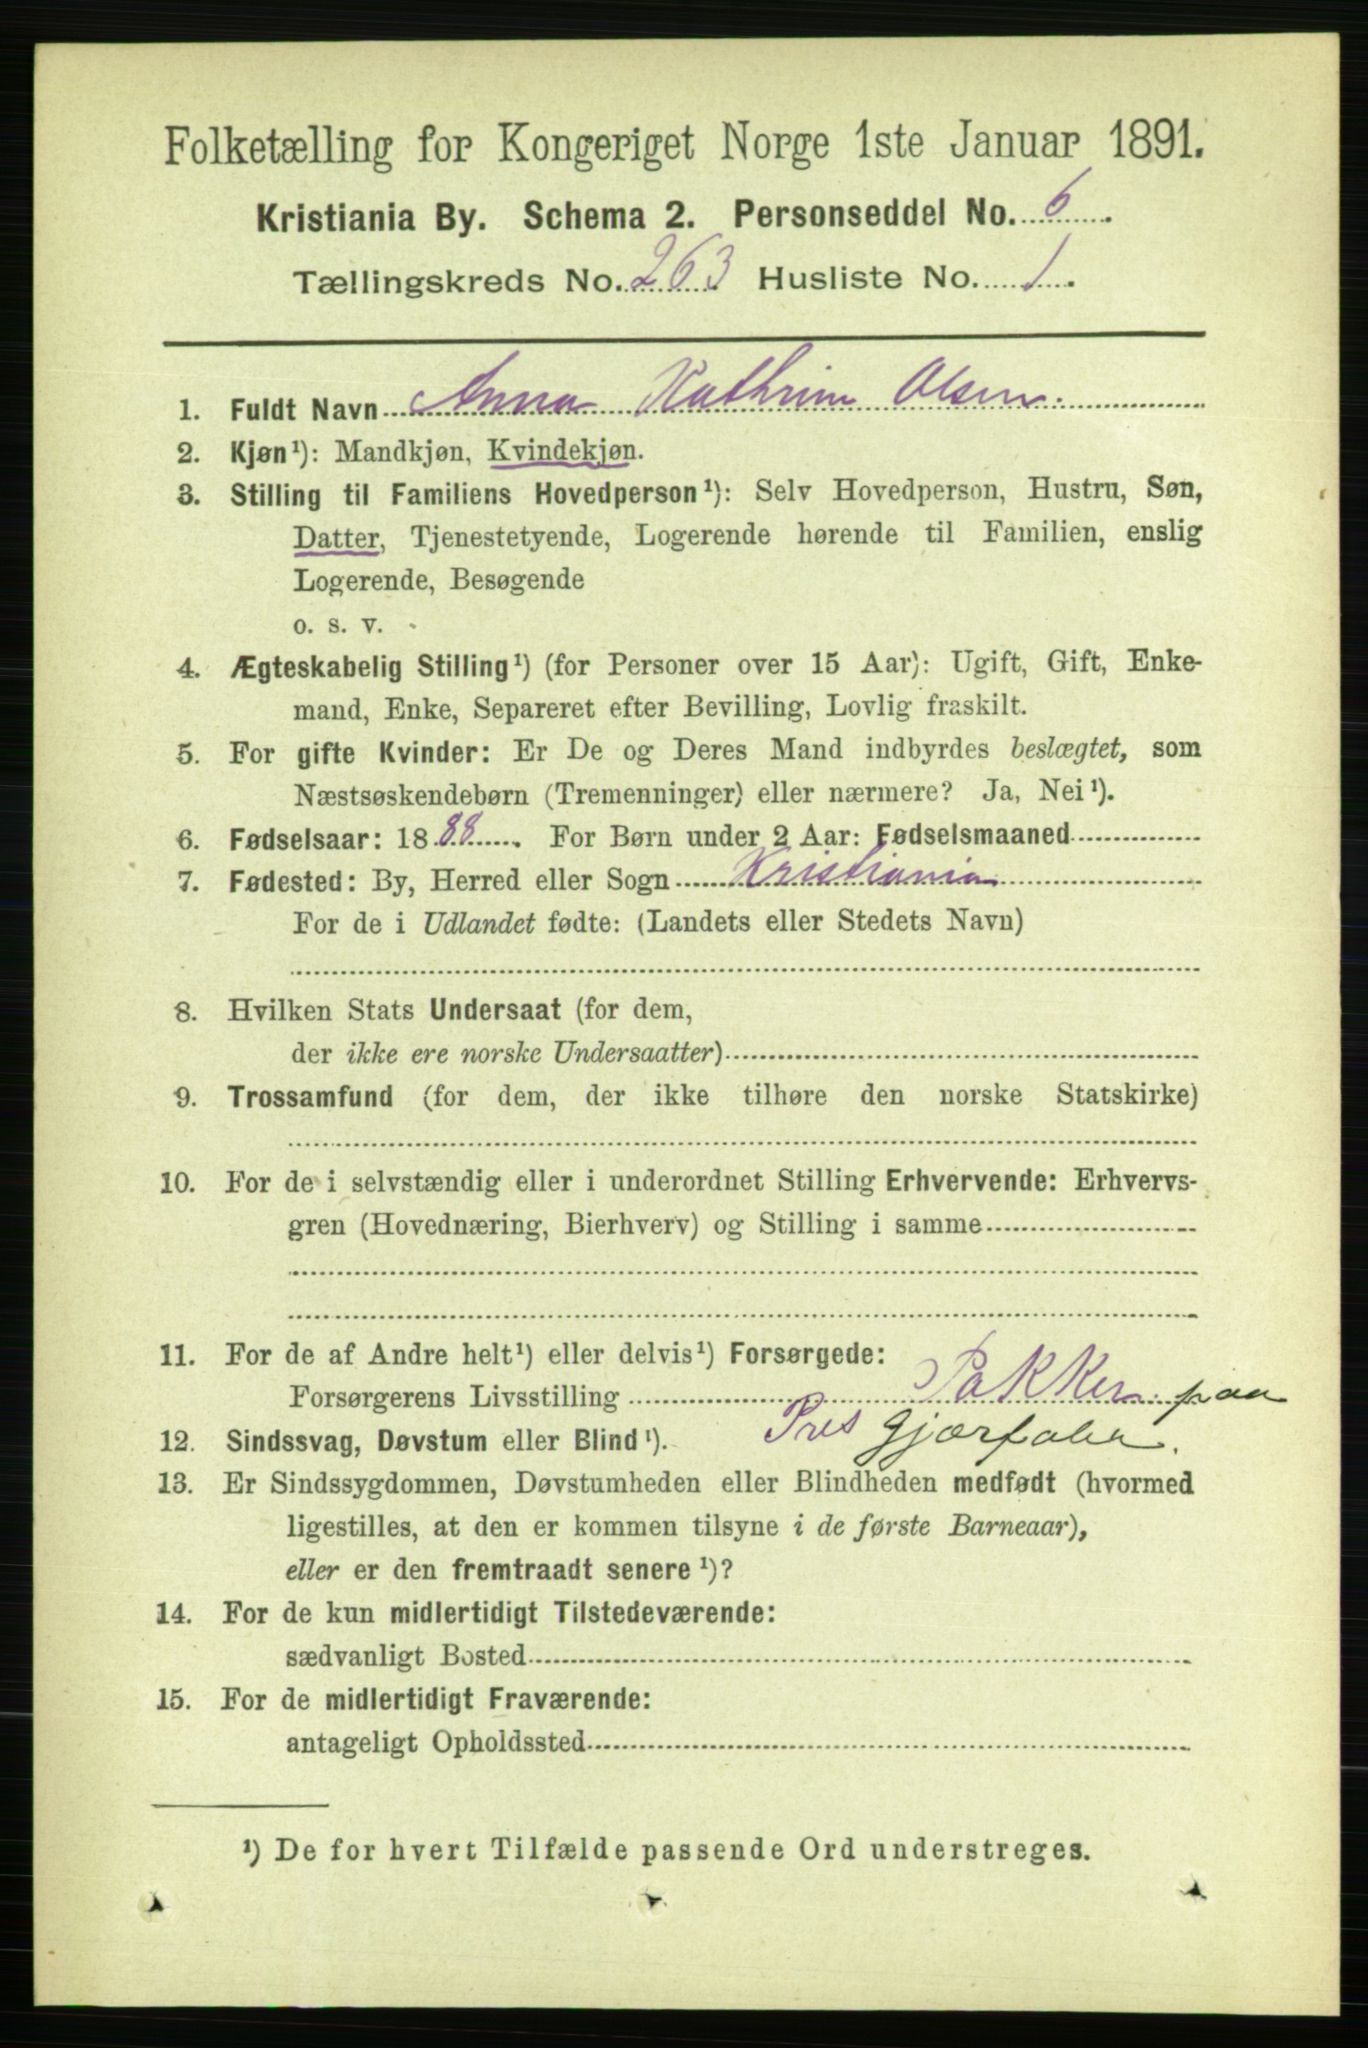 Folketælling for Kongeriget Norge 1ste Januar 1891.
Kristiania By. Schema 2. Personseddel No. 6.
Tællingskreds No. 263 Husliste No. 1.
1. Fuldt Navn Anna Kathrine Olsen.
2. Kjøn¹): Mandkjøn, Kvindekjøn.
3. Stilling til Familiens Hovedperson¹): Selv Hovedperson, Hustru, Søn,
Datter, Tjenestetyende, Logerende hørende til Familien, enslig
Logerende, Besøgende
o. s. v.
4. Ægteskabelig Stilling¹) (for Personer over 15 Aar): Ugift, Gift, Enke-
mand, Enke, Separeret efter Bevilling, Lovlig fraskilt.
5. For gifte Kvinder: Er De og Deres Mand indbyrdes beslægtet, som
Næstsøskendebørn (Tremenninger) eller nærmere? Ja, Nei¹).
6. Fødselsaar: 1888. For Børn under 2 Aar: Fødselsmaaned
7. Fødested: By, Herred eller Sogn Kristiania
For de i Udlandet fødte: (Landets eller Stedets Navn)
8. Hvilken Stats Undersaat (for dem,
der ikke ere norske Undersaatter)
9. Trossamfund (for dem, der ikke tilhøre den norske Statskirke)
10. For de i selvstændig eller i underordnet Stilling Erhvervende: Erhvervs-
gren (Hovednæring, Bierhverv) og Stilling i samme
11. For de af Andre helt¹) eller delvis¹) Forsørgede:
Forsørgerens Livsstilling Pakker paa
Pres Gjærfabr.
12. Sindssvag, Døvstum eller Blind¹).
13. Er Sindssygdommen, Døvstumheden eller Blindheden medfødt (hvormed
ligestilles, at den er kommen tilsyne i de første Barneaar),
eller er den fremtraadt senere¹)?
14. For de kun midlertidigt Tilstedeværende:
sædvanligt Bosted
15. For de midlertidigt Fraværende:
antageligt Opholdssted
¹) De for hvert Tilfælde passende Ord understreges.